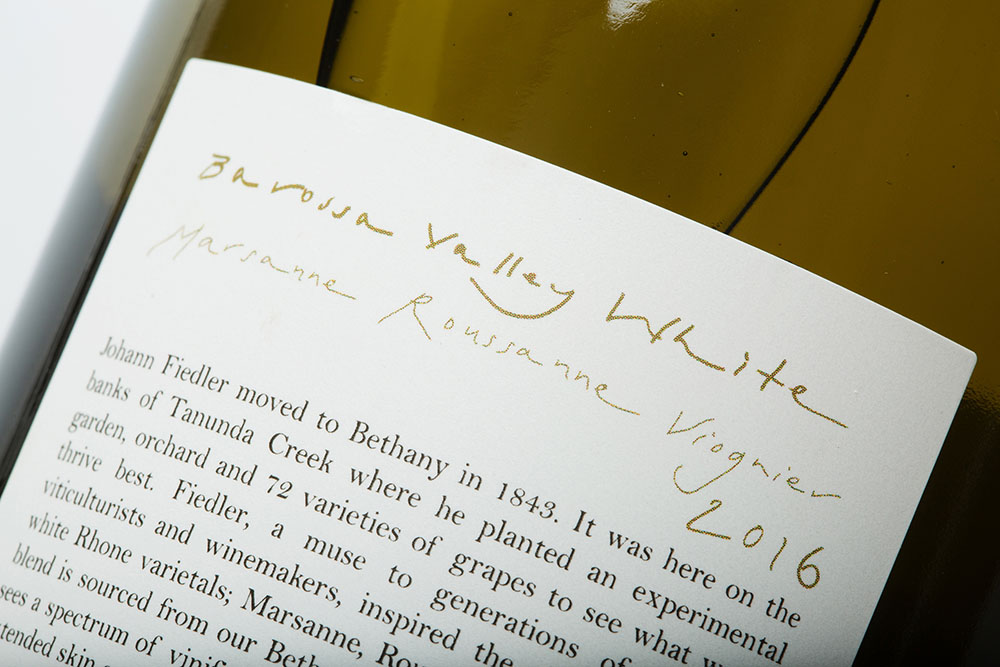 Barossa Valley White
Marsanne Roussanne Viognier
2016
Johann Fiedler moved to Bethany in 1843. It was here on the
banks of Tanunda Creek where he planted an experimental
garden, orchard and 72 varieties of grapes to see what
thrive best. Fiedler, a muse to generations of
viticulturists and winemakers, inspired the
white Rhone varietals; Marsanne,
blend is sourced from our
sees a spectrum of
skin